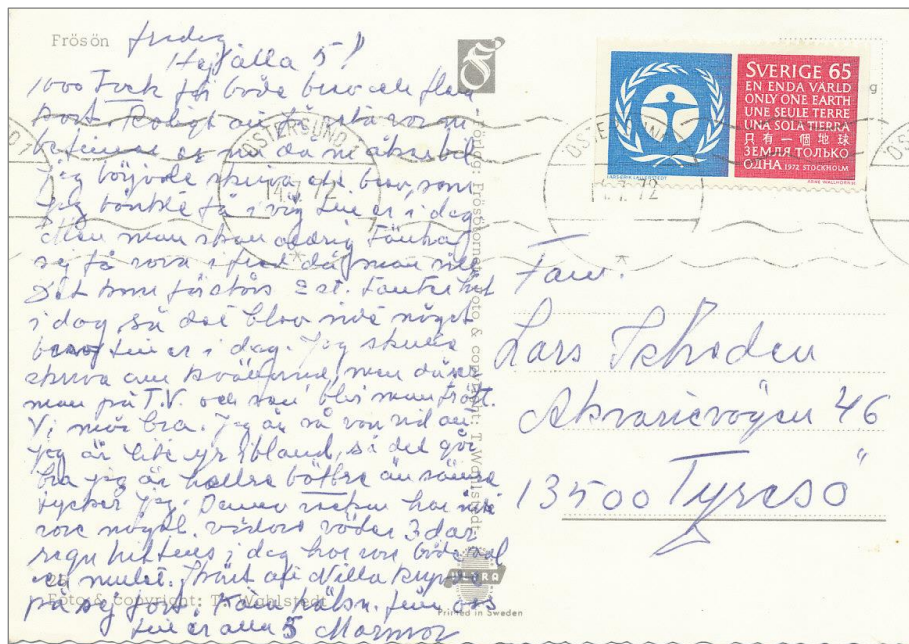 Frösön
fredag
Hej alla 5!
1000 Tack för både brev och flera
kort. Roligt att få
er nu då ni
Jag började skriva ett brev, som
jag tänkte få i väg till er i dag
Men man skall aldrig tänka
sej få vara i fred då man vill
Det kom förstås 2 st. tanter hit
i dag så det blev inte något
brev till er i dag. Jag skulle
skriva om kvällarna, men då ser
man på T.V. och sen blir man trött.
Vi mår bra. Jag är så van vid att
jag är lite yr ibland, så det går
bra jag är hellre bättre än sämre
tycker jag. Denna veckan har inte
varit något vidare väder 3 dar
regn hittills i dag har varit både sol
och mulet. att Nilla
på sej fort. hälsn. från oss
till er alla 5 Mormor
Sverige: Frösökornet Foto & copyright: T. Wahlstedt
Foto & copyright: T. Wahlstedt
ULTRA
Printed in Sweden
ÖSTERSUND 1
14.7.72
SVERIGE 65
EN ENDA VÄRLD
ONLY ONE EARTH
UNE SEULE TERRE
UNA SOLA TIERRA
只有一個地球
ЗЕМЛЯ ТОЛЬКО
ОДНА 1972 STOCKHOLM
Fam.
Lars Schodeu
Akvarievägen 46
13500 Tyresö